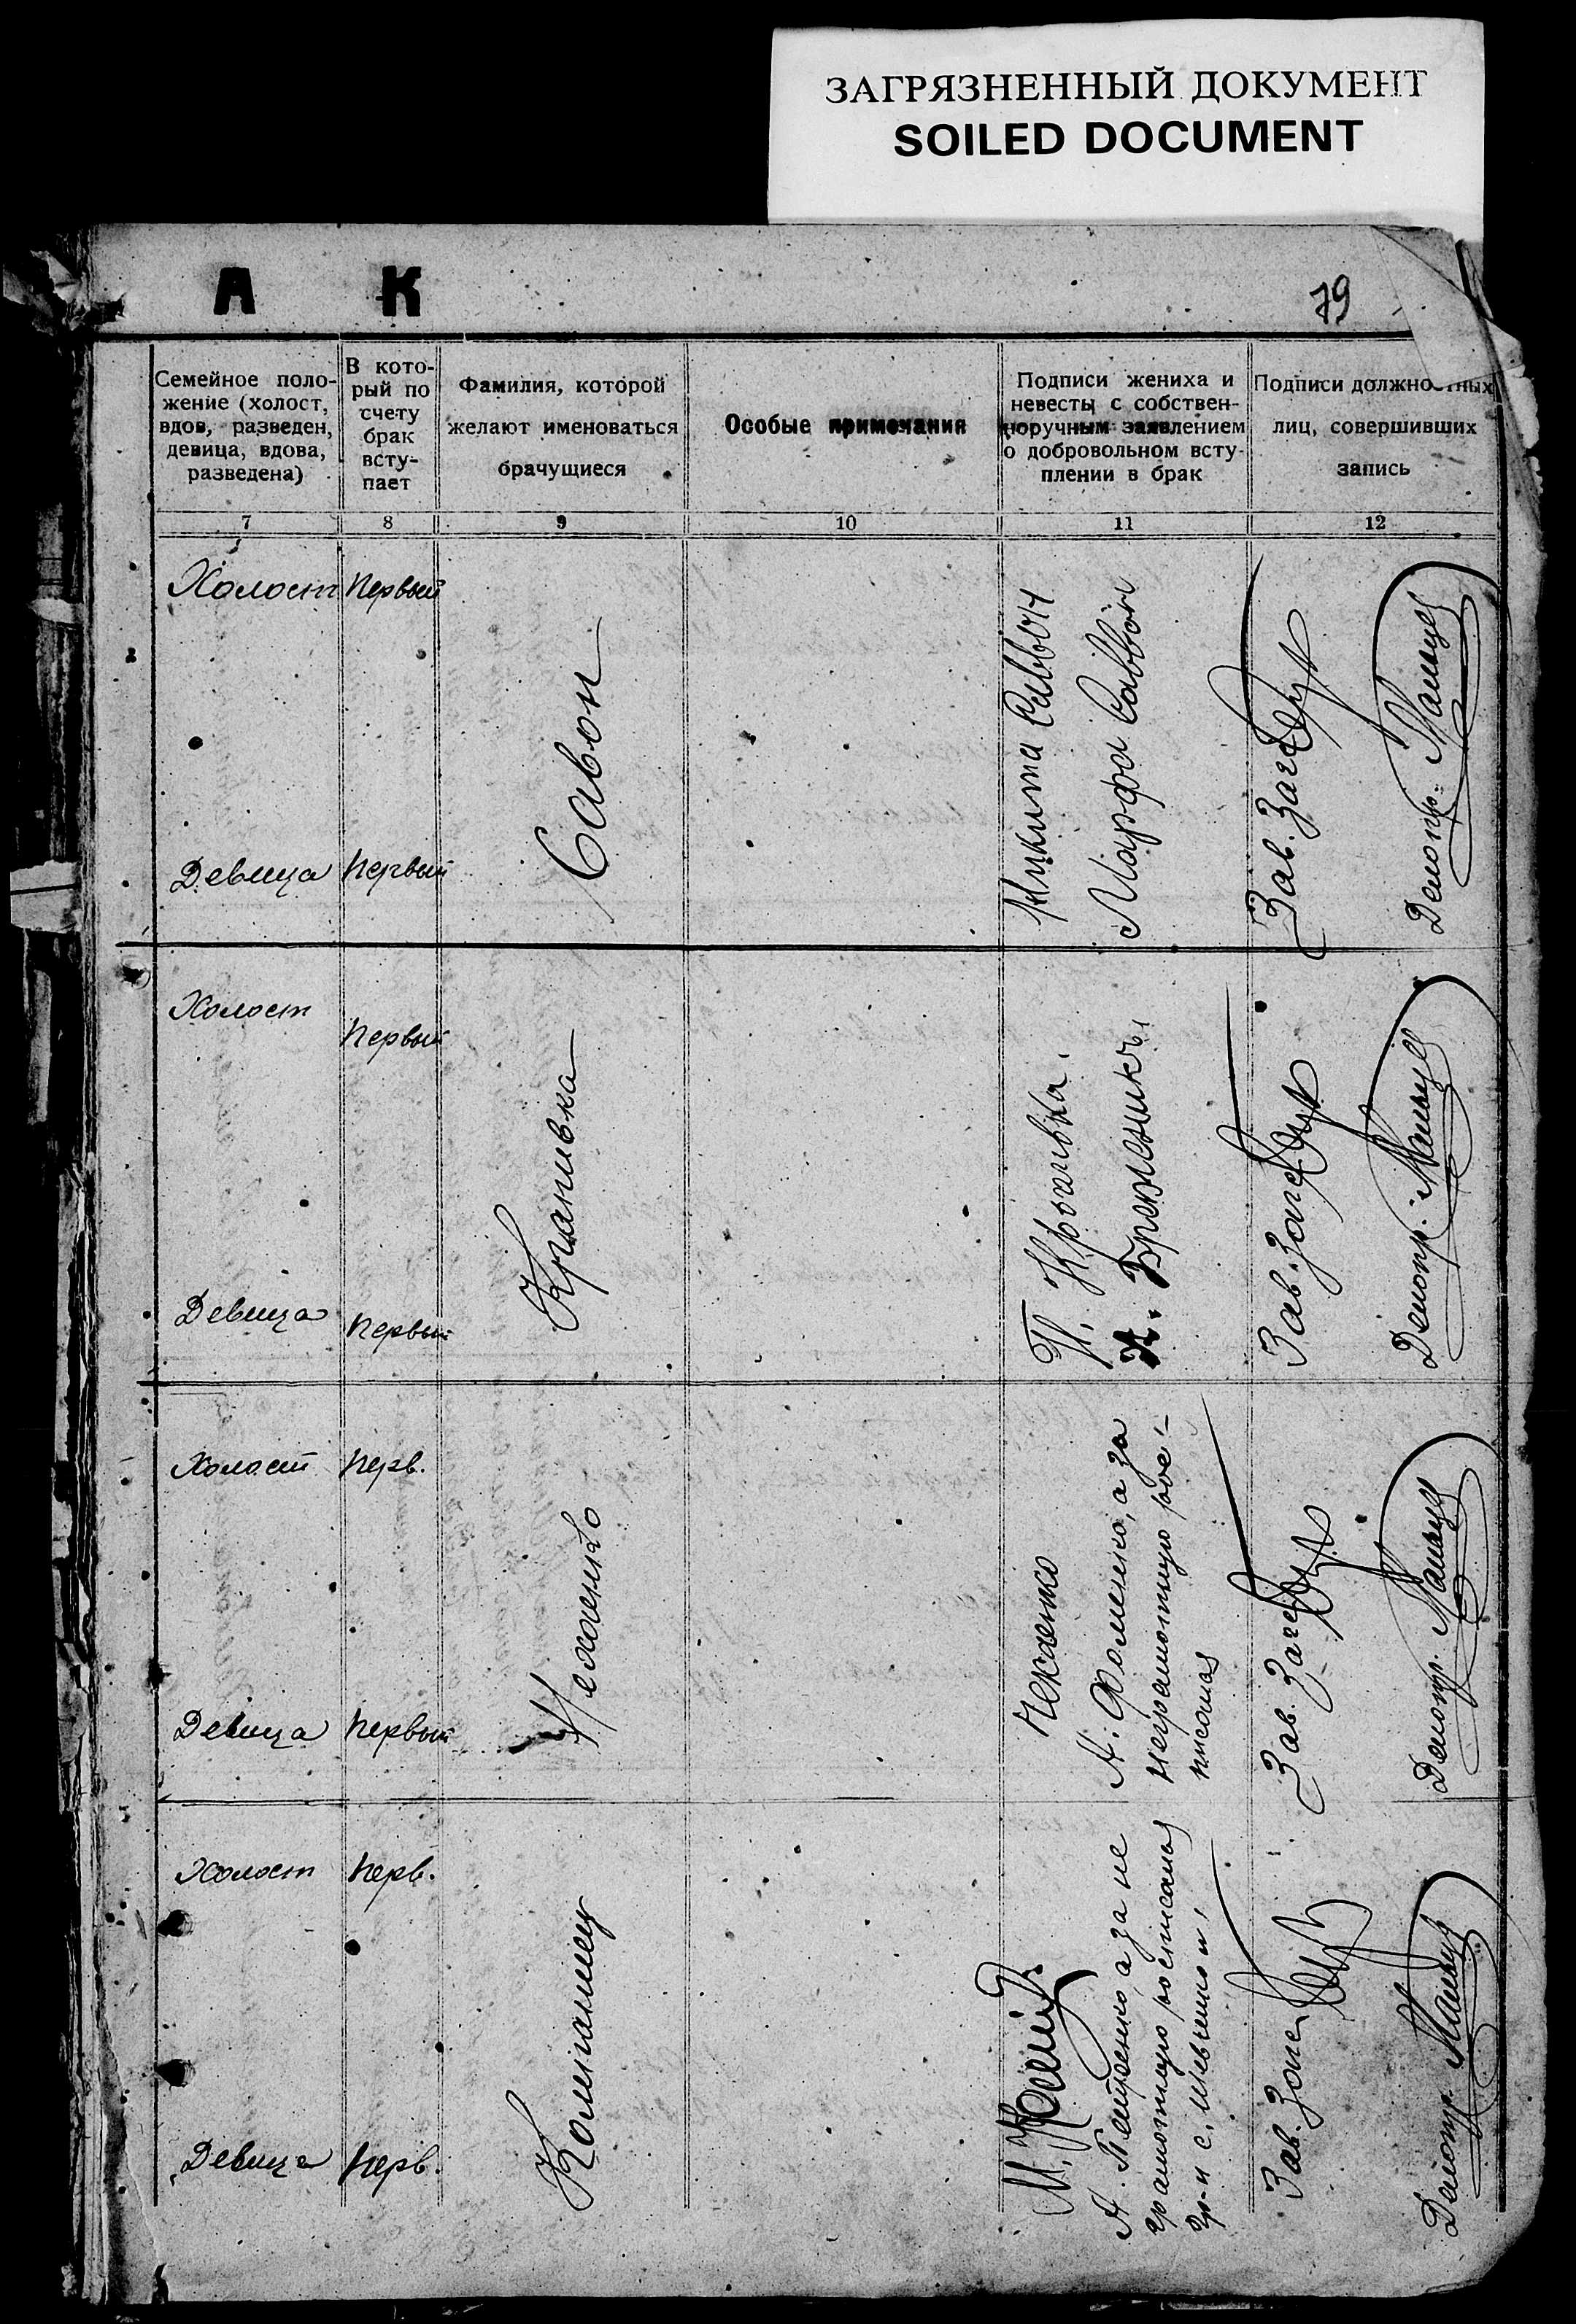 ЗАГРЯЗНЕННЫЙ ДОКУМЕНТ
SOILED DOCUMENT
А К
79
Семейное поло-
жение (холост,
вдов, разведен,
девица, вдова,
разведена)
В кото-
рый по
счету
брак
всту-
пает
Фамилия, которой
желают именоваться
брачущиеся
Особые примечания
Подписи жениха и
невесты с собствен-
норучным заявлением
о добровольном всту-
плении в брак
Подписи должностных
лиц, совершивших
запись
7 8 9 10 11 12
Холост Первый
Девица Первый
Савон
Микита Саввон
Марфа Саввон
Зав. Загс
Делопр.
Холост Первый
Девица Первый
Крапивка
П. Крапивка
Зав. Загс
Делопр.
Холост Перв.
Девица Первый
Нехаенко
Нехаенко
А. Фоменко, а за
неграмотную рос-
писалась
Зав. Загс
Делопр.
Холост Перв.
Девица Перв.
Коломиец
М.
А. Петренко, а за не
грамотную росписалась
гр-н с.
Зав. Загс
Делопр.